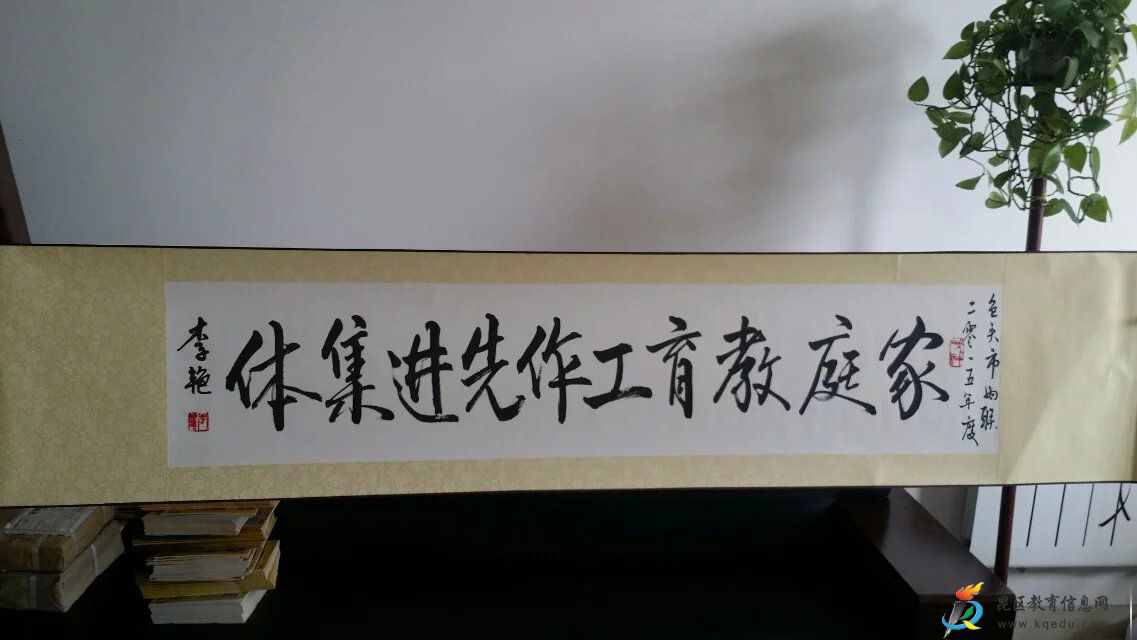 包头市妇联
二零一五年度
家庭教育工作先进集体
李艳
昆区教育信息网
www.kqedu.com